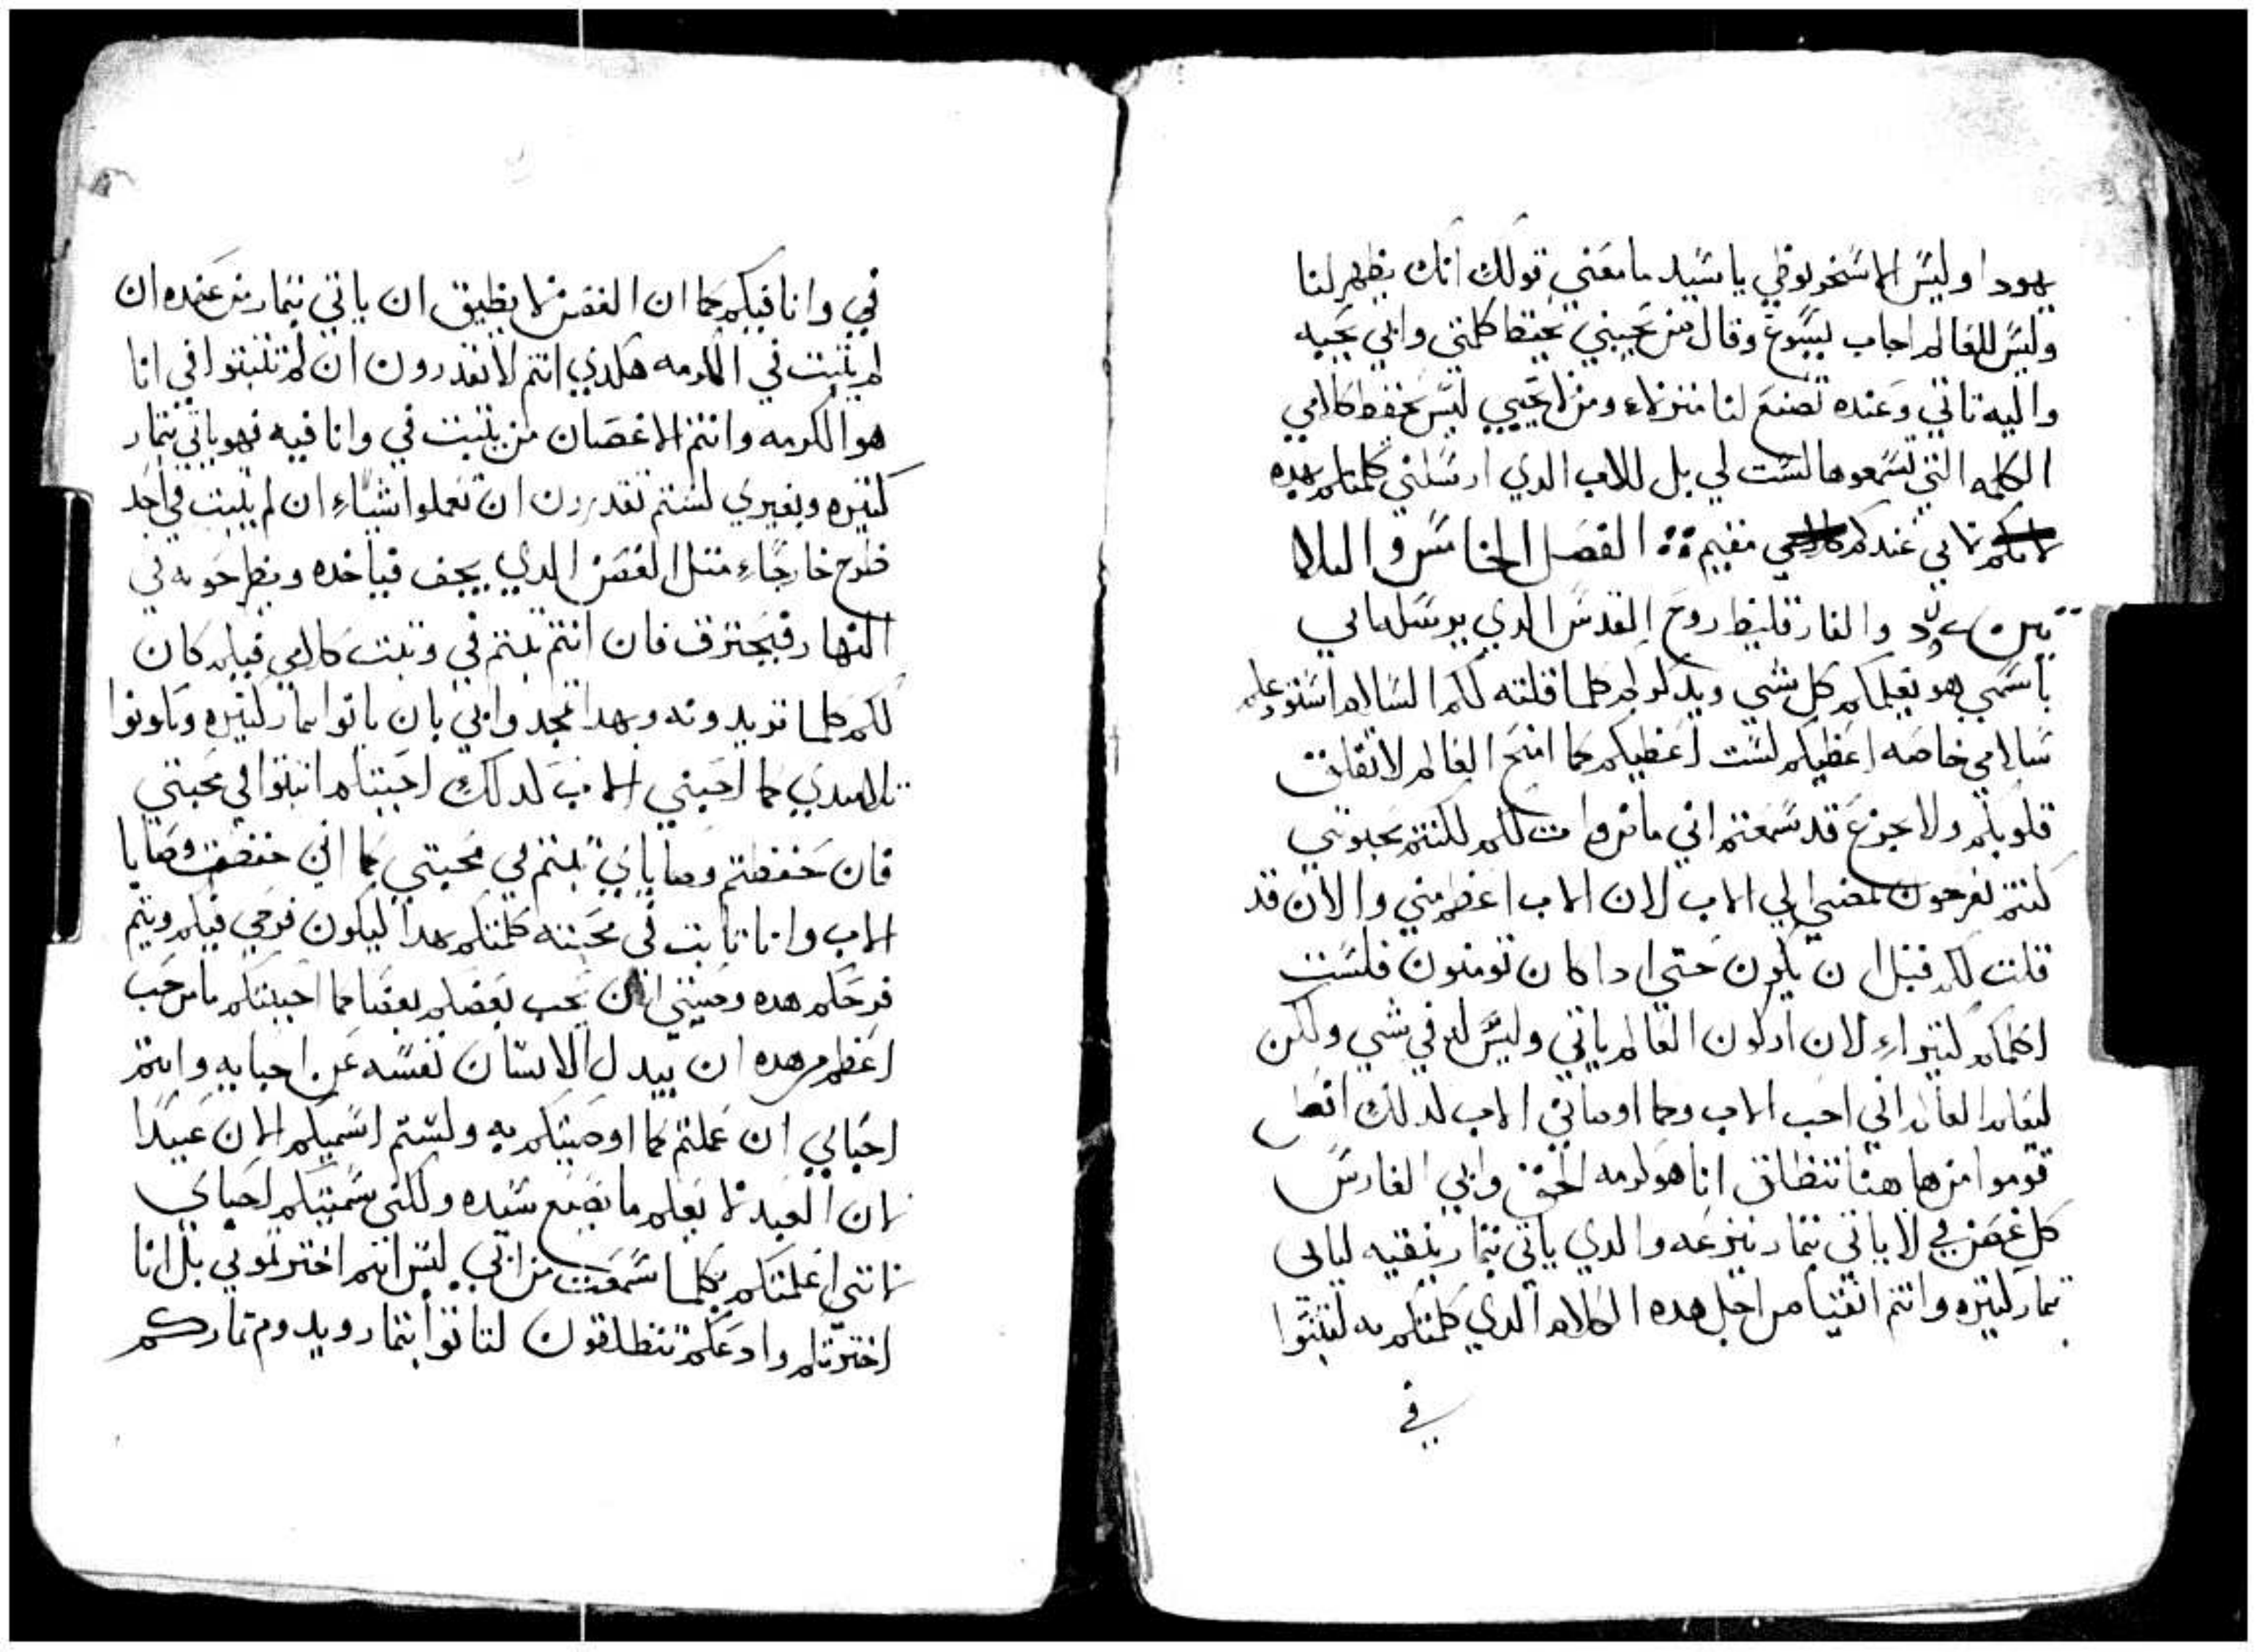 يهودا وليس الاسخريوطي يا سيد ما معني قولك انك تظهر لنا
وليس للعالم اجاب يسوع وقال من يحبني يحفظ كلمتي وابي يحبه
واليه ناتي وعنده نصنع لنا منزلاء ومن لا يحبني ليس يحفظ كلامي
الكلمه التي تسمعوها ليست لي بل للاب الدي ارسلني كلمتكم بهده
لاني عندكم مقيم الفصل الخامس والثلا
والفارقليط روح القدس الدي يرسله ابي
باسمي هو يعلمكم كل شي ويدكركم كلما قلته لكم السلام استودعكم
سلامي خاصه اعطيكم لست اعطيكم كما امنح العالم لا تقلق
قلوبكم ولا تجزع قد سمعتم اني لكم لكنتم تحبوني
كنتم تفرحون بمضيي الي الاب لان الاب اعظم مني والان قد
قلت لكم قبل ان يكون حتي ادا كان تومنون فلست
اكلمكم كتيراء لان اركون العالم ياتي وليس له في شي ولكن
ليعلم العالم اني احب الاب وكما اوصاني الاب لدلك افعل
قوموا من هاهنا ننطلق انا هو كرمه الحق وابي الفارس
كل غصن في لا ياتي بتمار ينزعه والدي ياتي بتمار ينقيه لياتي
بتمار كتيره وانتم انقيا من اجل هده الكلام الدي كلمتكم به لتثبتوا
في
في وانا فيكم كما ان الغصن لا يطيق ان ياتي بتمار من عنده ان
لم يثبت في الكرمه هكدي انتم لا تقدرون ان لم تثبتوا في انا
هو الكرمه وانتم الاغصان من يثبت في وانا فيه فهو ياتي بتمار
كتيره وبغيري لستم تقدرون ان تعملوا شياء ان لم يثبت في احد
طرح خارجاء متل الغصن الدي يجف فياخده ويطرحونه في
النار فيحترق فان انتم ثبتم في وثبت كلامي فيكم كان
لكم كلما تريدونه وبهدا يمجد ابي بان تاتوا بتمار كتيره وتكونوا
تلاميدي كما احبني الاب كدلك احببتكم اثبتوا في محبتي
فان حفظتم وصاياي ثبتم في محبتي كما اني حفظت وصايا
الاب وانا ثابت في محبته كلمتكم بهدا ليكون فرحي فيكم ويتم
فرحكم هده وصيتي ان يحب بعضكم بعضا كما احببتكم ما من حب
اعظم من هده ان يبدل الانسان نفسه عن احبايه وانتم
احباي ان عملتم كما اوصيتكم به ولستم اسميكم الان عبيدا
لان العبد لا يعلم ما يصنع سيده ولكني سميتكم احباي
لانني اعلمتكم بكلما سمعت من ابي ليس انتم اخترتموني بل انا
اخترتكم وادعكم تنطلقون لتاتوا بتمار ويدوم تماركم